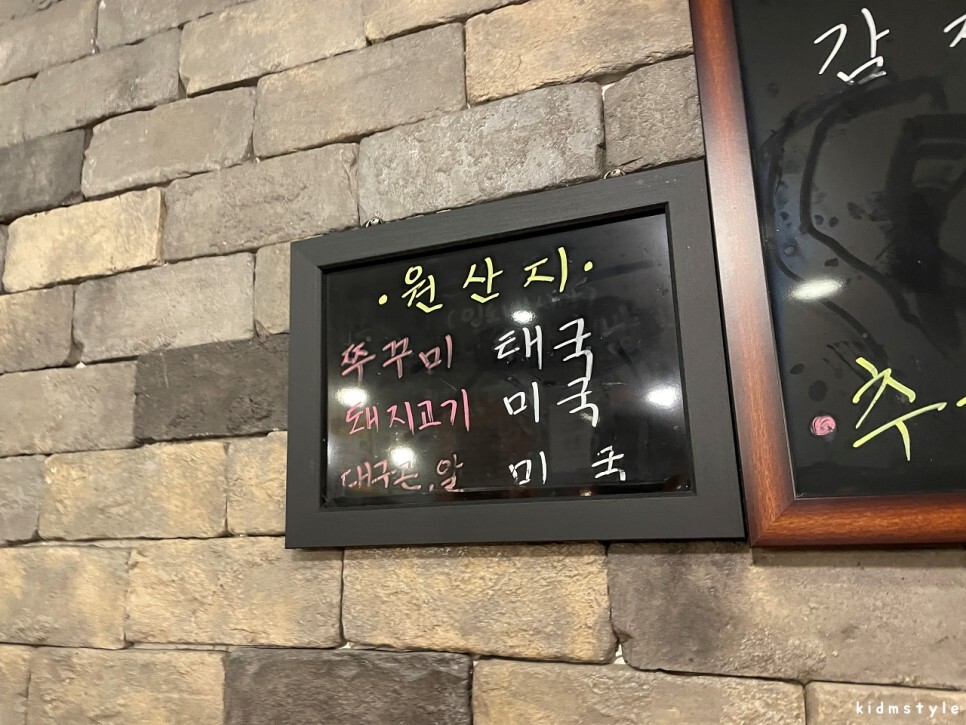 ·원산지·
쭈꾸미 태국
돼지고기 미국
대구곤,알 미국
kidmstyle